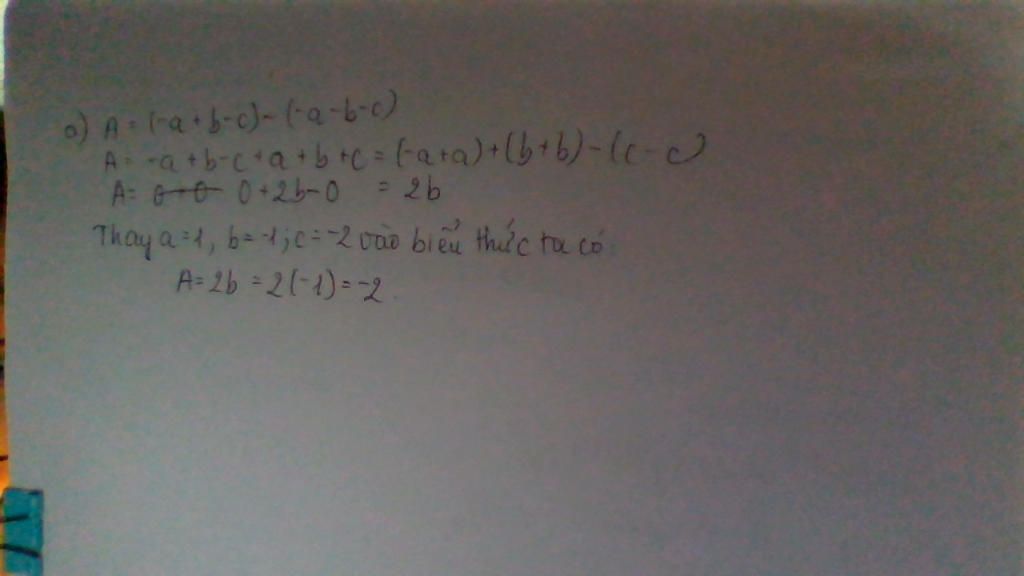 a) A = (-a+b-c)-(-a-b-c)
A = -a+b-c+a+b+c = (-a+a)+(b+b)-(c-c)
A = 0+0 0+2b-0 = 2b
Thay a=1, b=-1; c=-2 vào biểu thức ta có
A=2b = 2(-1) = -2.